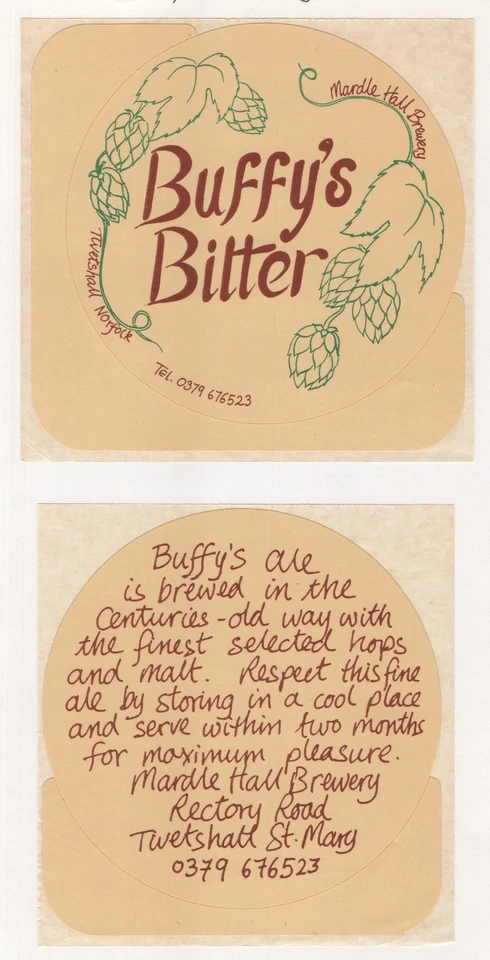 Mardle Hall Brewery
Buffy's
Bitter
Twetshall Norfolk
TEL. 0379 676523
Buffy's ale
is brewed in the
Centuries-old way with
the finest selected hops
and malt. Respect this fine
ale by storing in a cool place
and serve within two months
for maximum pleasure.
Mardle Hall Brewery
Rectory Road
Tivetshall St. Mary
0379 676523